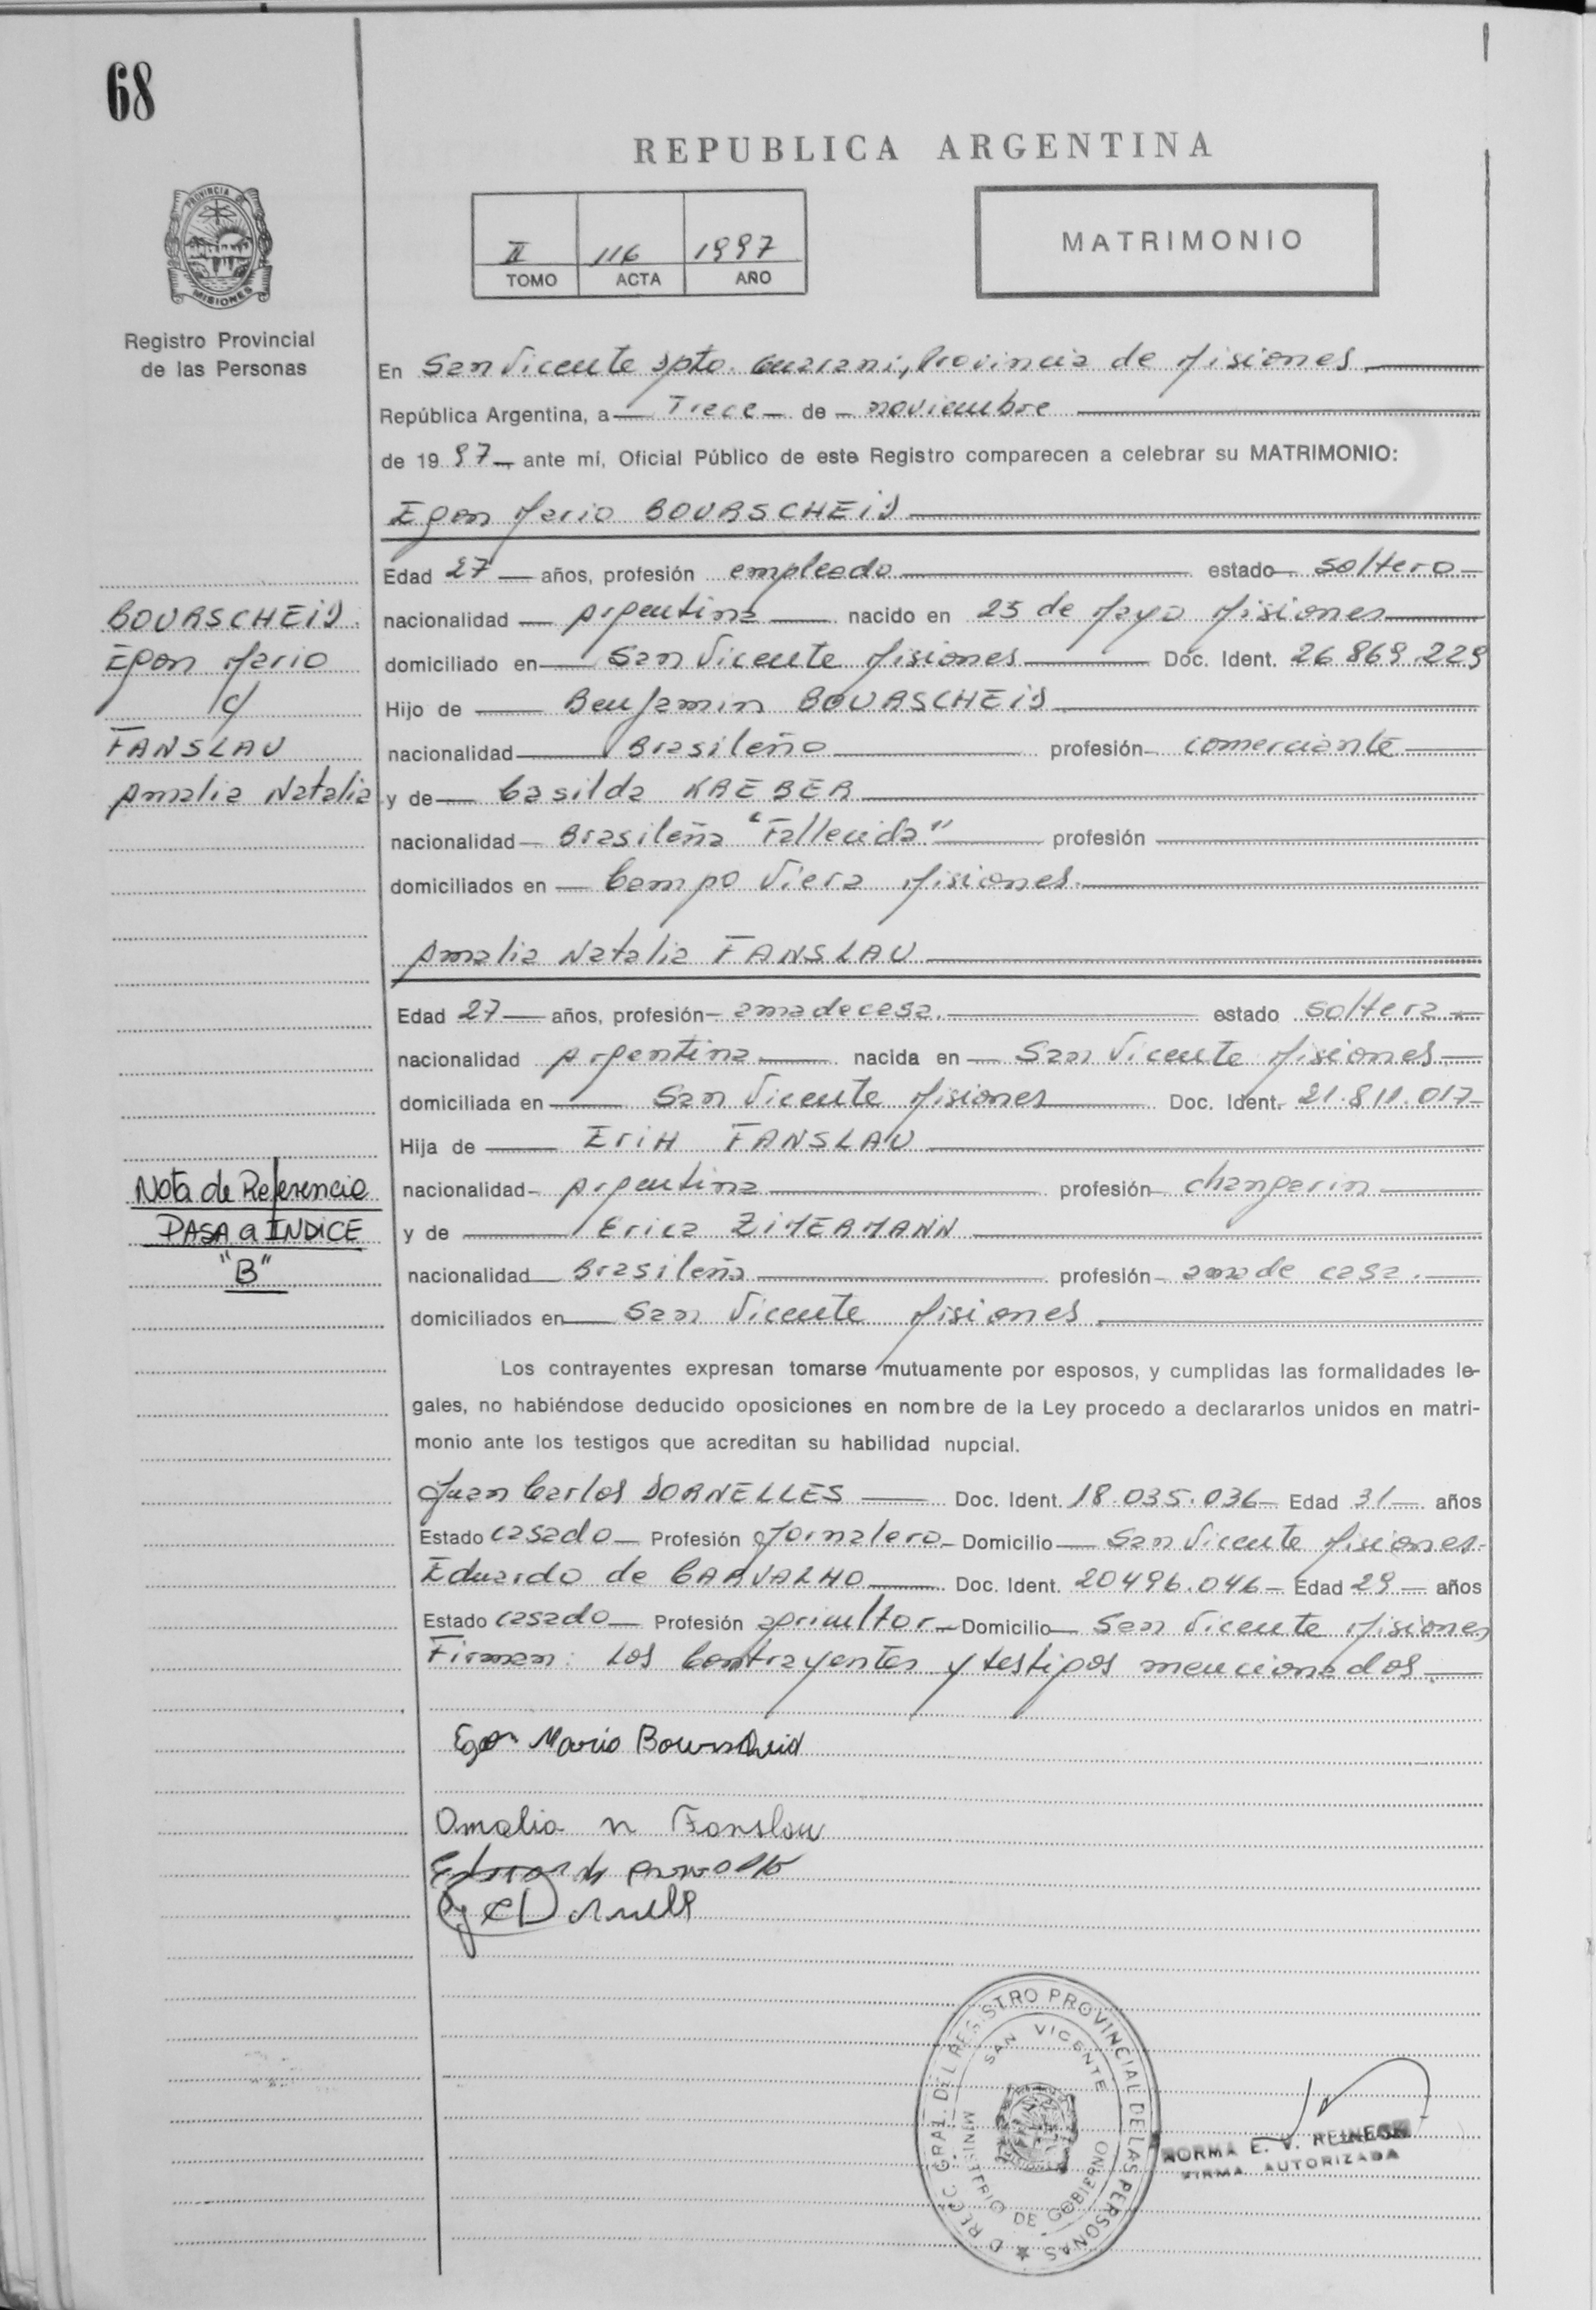 68
REPUBLICA ARGENTINA
PROVINCIA DE
MISIONES
Registro Provincial
de las Personas
II 116 1997
TOMO ACTA AÑO
MATRIMONIO
En San Vicente Dpto. Guarani, Provincia de Misiones
República Argentina, a Trece de noviembre
de 1997 ante mí, Oficial Público de este Registro comparecen a celebrar su MATRIMONIO:
Egon Mario BOURSCHEID
Edad 27 años, profesión empleado estado soltero
nacionalidad Argentina nacido en 25 de Mayo Misiones
domiciliado en San Vicente Misiones Doc. Ident. 26.869.229
Hijo de Benjamin BOURSCHEID
nacionalidad Brasileño profesión comerciante
y de Casilda KREBER
nacionalidad Brasileña "Fallecida" profesión
domiciliados en Campo Viera Misiones.
Amalia Natalia FANSLAU
Edad 27 años, profesión ama de casa. estado soltera
nacionalidad Argentina nacida en San Vicente Misiones
domiciliada en San Vicente Misiones Doc. Ident. 21.811.017
Hija de EriH FANSLAU
nacionalidad Argentina profesión changarin
y de Erica ZIMERMANN
nacionalidad Brasileña profesión ama de casa.
domiciliados en San Vicente Misiones.
BOURSCHEID
Egon Mario
c/
FANSLAU
Amalia Natalia
Nota de Referencia
PASA a INDICE
"B"
Los contrayentes expresan tomarse mutuamente por esposos, y cumplidas las formalidades le-
gales, no habiéndose deducido oposiciones en nombre de la Ley procedo a declararlos unidos en matri-
monio ante los testigos que acreditan su habilidad nupcial.
Juan Carlos DORNELLES Doc. Ident. 18.035.036 Edad 31 años
Estado casado Profesión Jornalero Domicilio San Vicente Misiones.
Eduardo de CARVALHO Doc. Ident. 20496.046 Edad 29 años
Estado casado Profesión agricultor Domicilio San Vicente Misiones
Firman: Los Contrayentes y testigos mencionados
Egon Mario Bourscheid
Amalia N Fanslau
DIRECC. GRAL. DEL REGISTRO PROVINCIAL DE LAS PERSONAS
SAN VICENTE
MINISTERIO DE GOBIERNO
NORMA E. V. REINECK
FIRMA AUTORIZADA